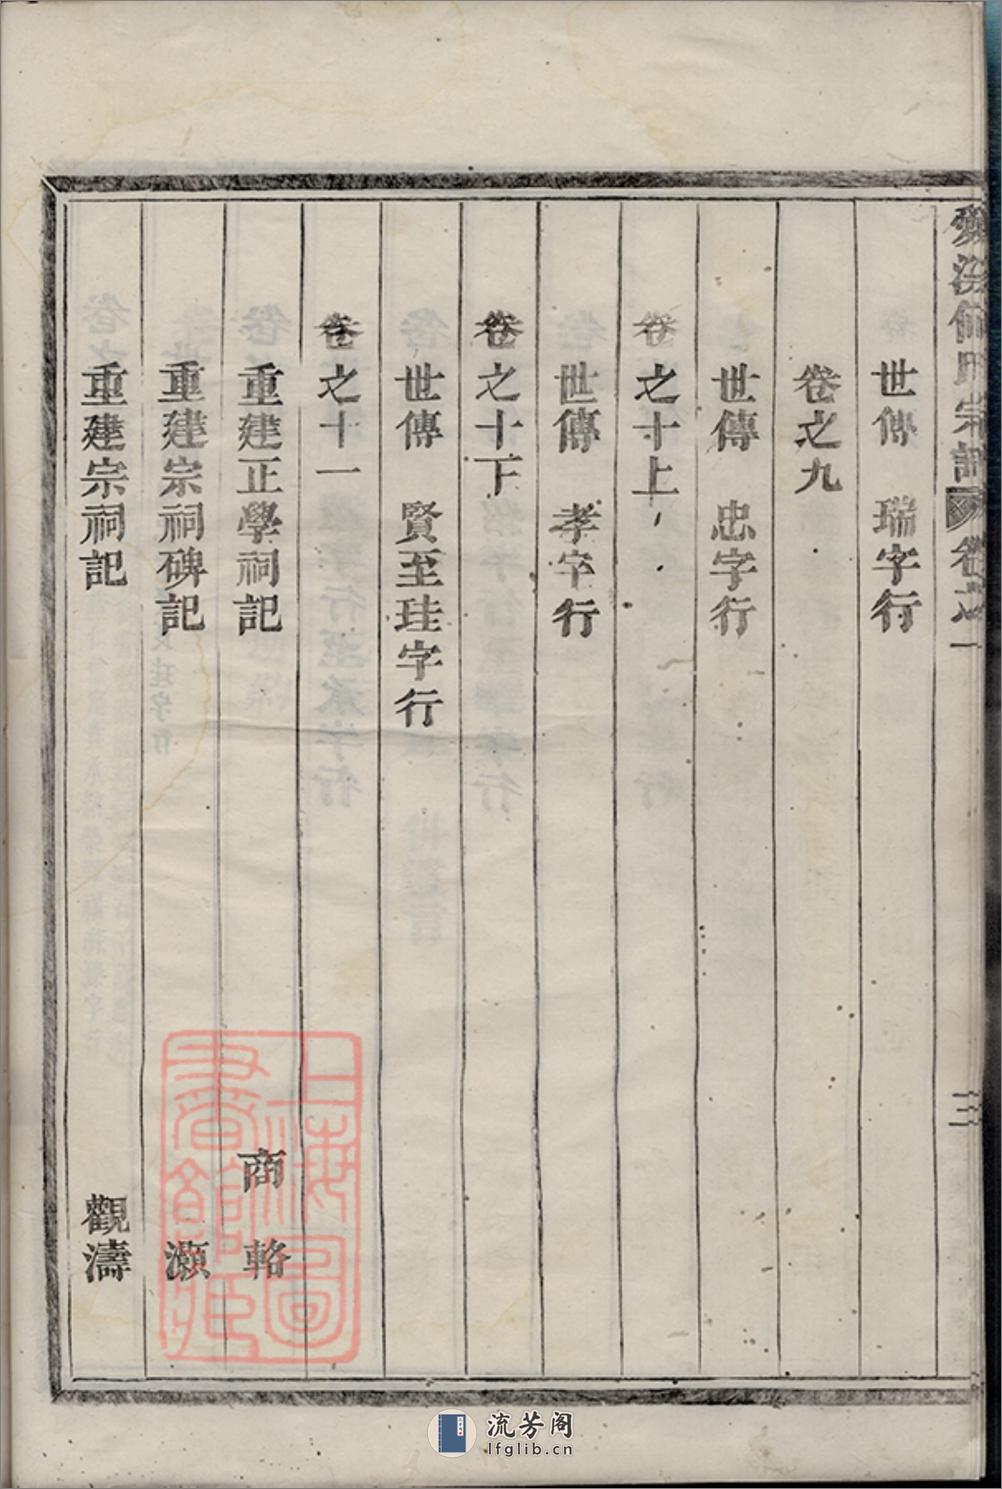 宗譜 卷之一
三
世傳 瑞字行
卷之九
世傳 忠字行
卷之十上
世傳 孝字行
卷之十下
世傳 賢至珪字行
卷之十一
重建正學祠記 商輅
重建宗祠碑記 灝
重建宗祠記 觀濤
上海圖書館藏
流芳阁
lfglib.cn